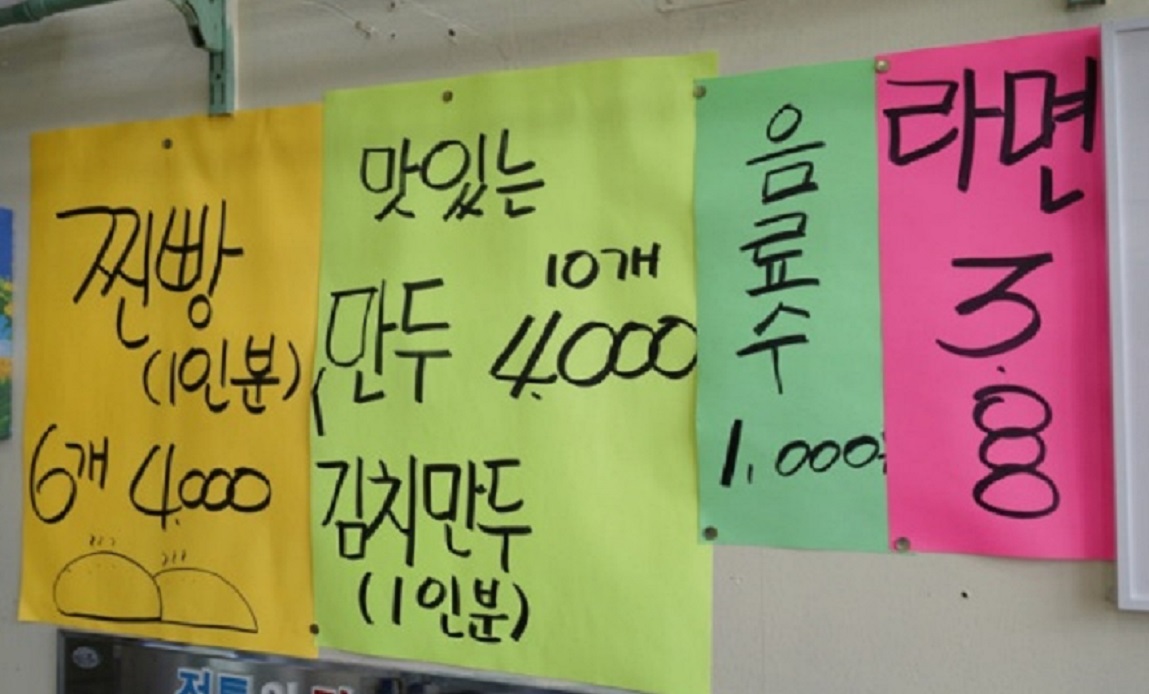 찐빵
(1인분)
6개 4.000
맛있는
10개
만두 4.000
김치만두
(1인분)
음
료
수
1.000
라면
3.
0
0
0